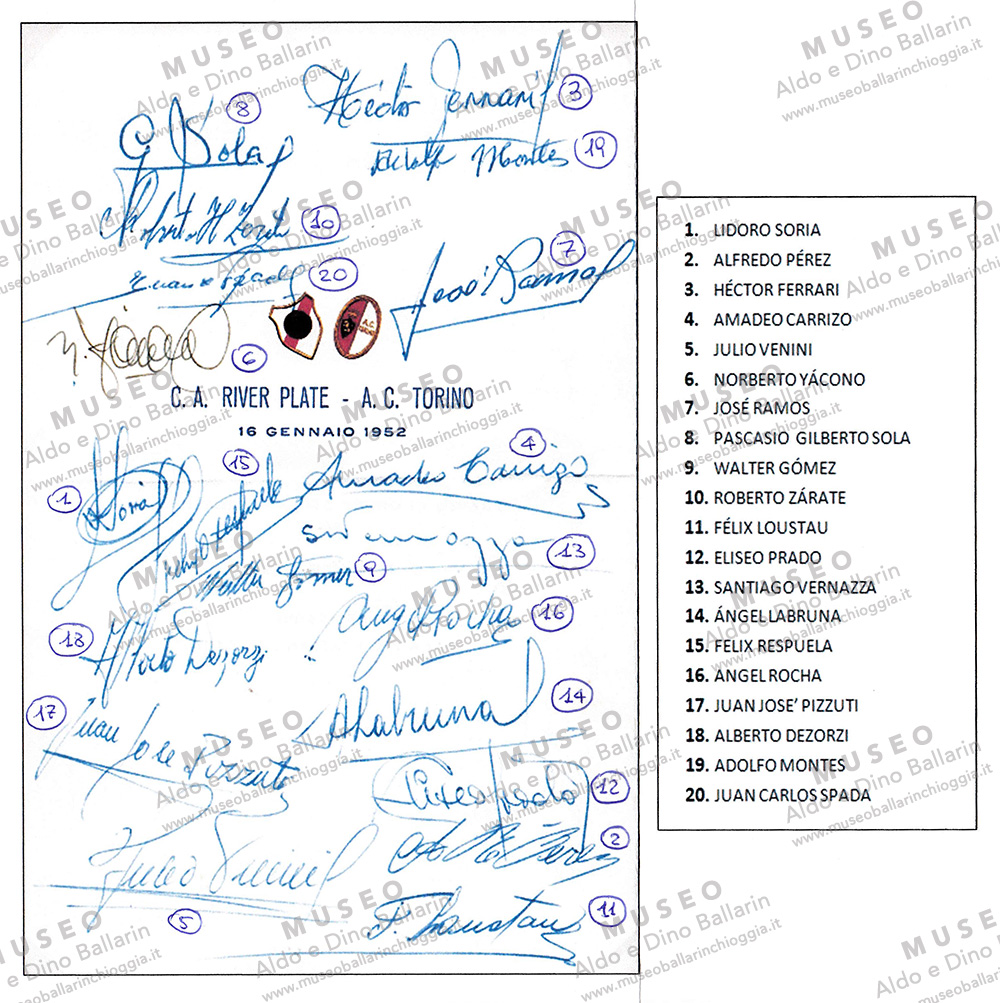 Héctor Ferrari 3
8
G Sola
Adolfo Montes 19
Roberto H Zárate 10
7
20
José Ramos
6
C. A. RIVER PLATE - A. C. TORINO
16 GENNAIO 1952
4
15 Amadeo Carrizo
1 Soria
13
Walter Gomez 9
Angel Rocha 16
18 Alberto Dezorzi
17 ALabruna 14
Juan Jose Pizzuti
Eliseo Prado 12
2
Julio Venini
5
F. Loustau 11
1. LIDORO SORIA
2. ALFREDO PÉREZ
3. HÉCTOR FERRARI
4. AMADEO CARRIZO
5. JULIO VENINI
6. NORBERTO YÁCONO
7. JOSÉ RAMOS
8. PASCASIO GILBERTO SOLA
9. WALTER GÓMEZ
10. ROBERTO ZÁRATE
11. FÉLIX LOUSTAU
12. ELISEO PRADO
13. SANTIAGO VERNAZZA
14. ÁNGEL LABRUNA
15. FELIX RESPUELA
16. ANGEL ROCHA
17. JUAN JOSE' PIZZUTI
18. ALBERTO DEZORZI
19. ADOLFO MONTES
20. JUAN CARLOS SPADA
MUSEO
Aldo e Dino Ballarin
www.museoballarinchioggia.it